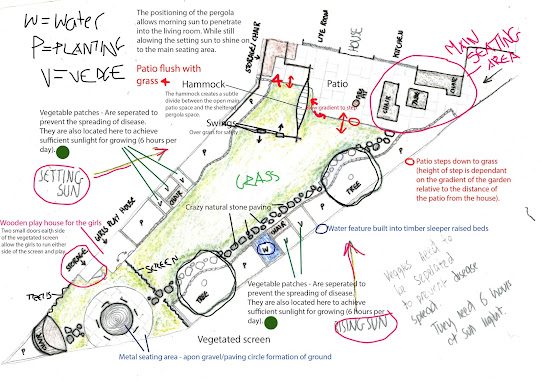 W=Water
P=PLANTING
V=VEDGE
The positioning of the pergola
allows morning sun to penetrate
into the living room. While still
alowing the setting sun to shine on
to the main seating area.
Patio flush with
grass
STORAGE/CHAIR
LIVE ROOM
HOUSE
KITCHEN
MAIN
SEATING
AREA
Hammock
The hammock creates a subtle
divide between the open main
patio space and the sheltered
pergola space.
Patio
Swings
Over grass for safety
Vegetable patches - Are seperated to
prevent the spreading of disease.
They are also located here to achieve
sufficient sunlight for growing (6 hours per
day).
SETTING
SUN
P
V
V
CHAIR
V
V
P
GRASS
TREE
P
Patio steps down to grass
(height of step is dependant
on the gradient of the garden
relative to the distance of
the patio from the house).
Wooden play house for the girls
Two small doors eaith side
of the vegetated screen
allow the girls to run either
side of the screen and play.
GIRLS PLAY HOUSE
Crazy natural stone paving
Water feature built into timber sleeper raised beds
STORAGE
SCREEN
CHAIR
W
P
TREE
Vegetable patches - Are seperated to
prevent the spreading of disease.
They are also located here to achieve
sufficient sunlight for growing (6 hours per
day).
RISING SUN
Veggies need to
be seperated
to prevent disease
spread
They need 6 hours
of sun light.
P
Vegetated screen
Metal seating area - apon gravel/paving circle formation of ground